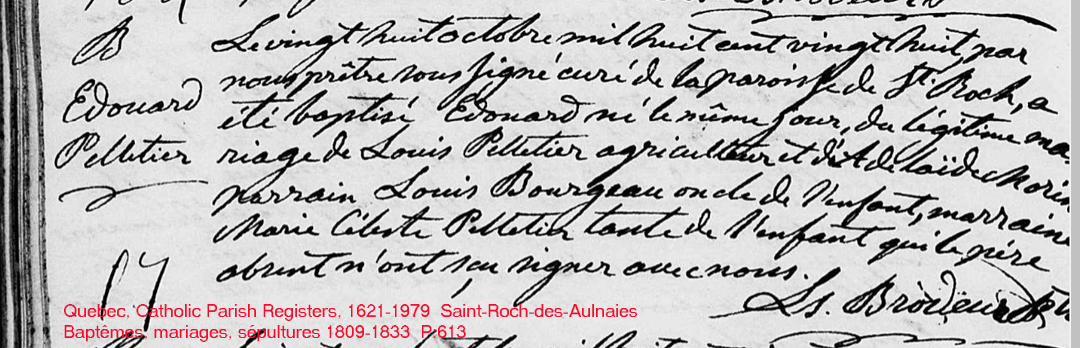 B
Edouard
Pelletier
Le vingt huit octobre mil huit cent vingt huit, par
nous prêtre sous signé curé de la paroisse de St. Roch, a
été baptisé Edouard né le même jour, du légitime ma-
riage de Louis Pelletier agriculteur et d'Adelaïde Morin
parrain Louis Bourgeau oncle de l'enfant, marraine
Marie Céleste Pelletier tante de l'enfant qui le père
absent n'ont sçu signer avec nous.
Ls. Brodeur Ptre
Quebec, Catholic Parish Registers, 1621-1979 Saint-Roch-des-Aulnaies
Baptêmes, mariages, sépultures 1809-1833 P.613